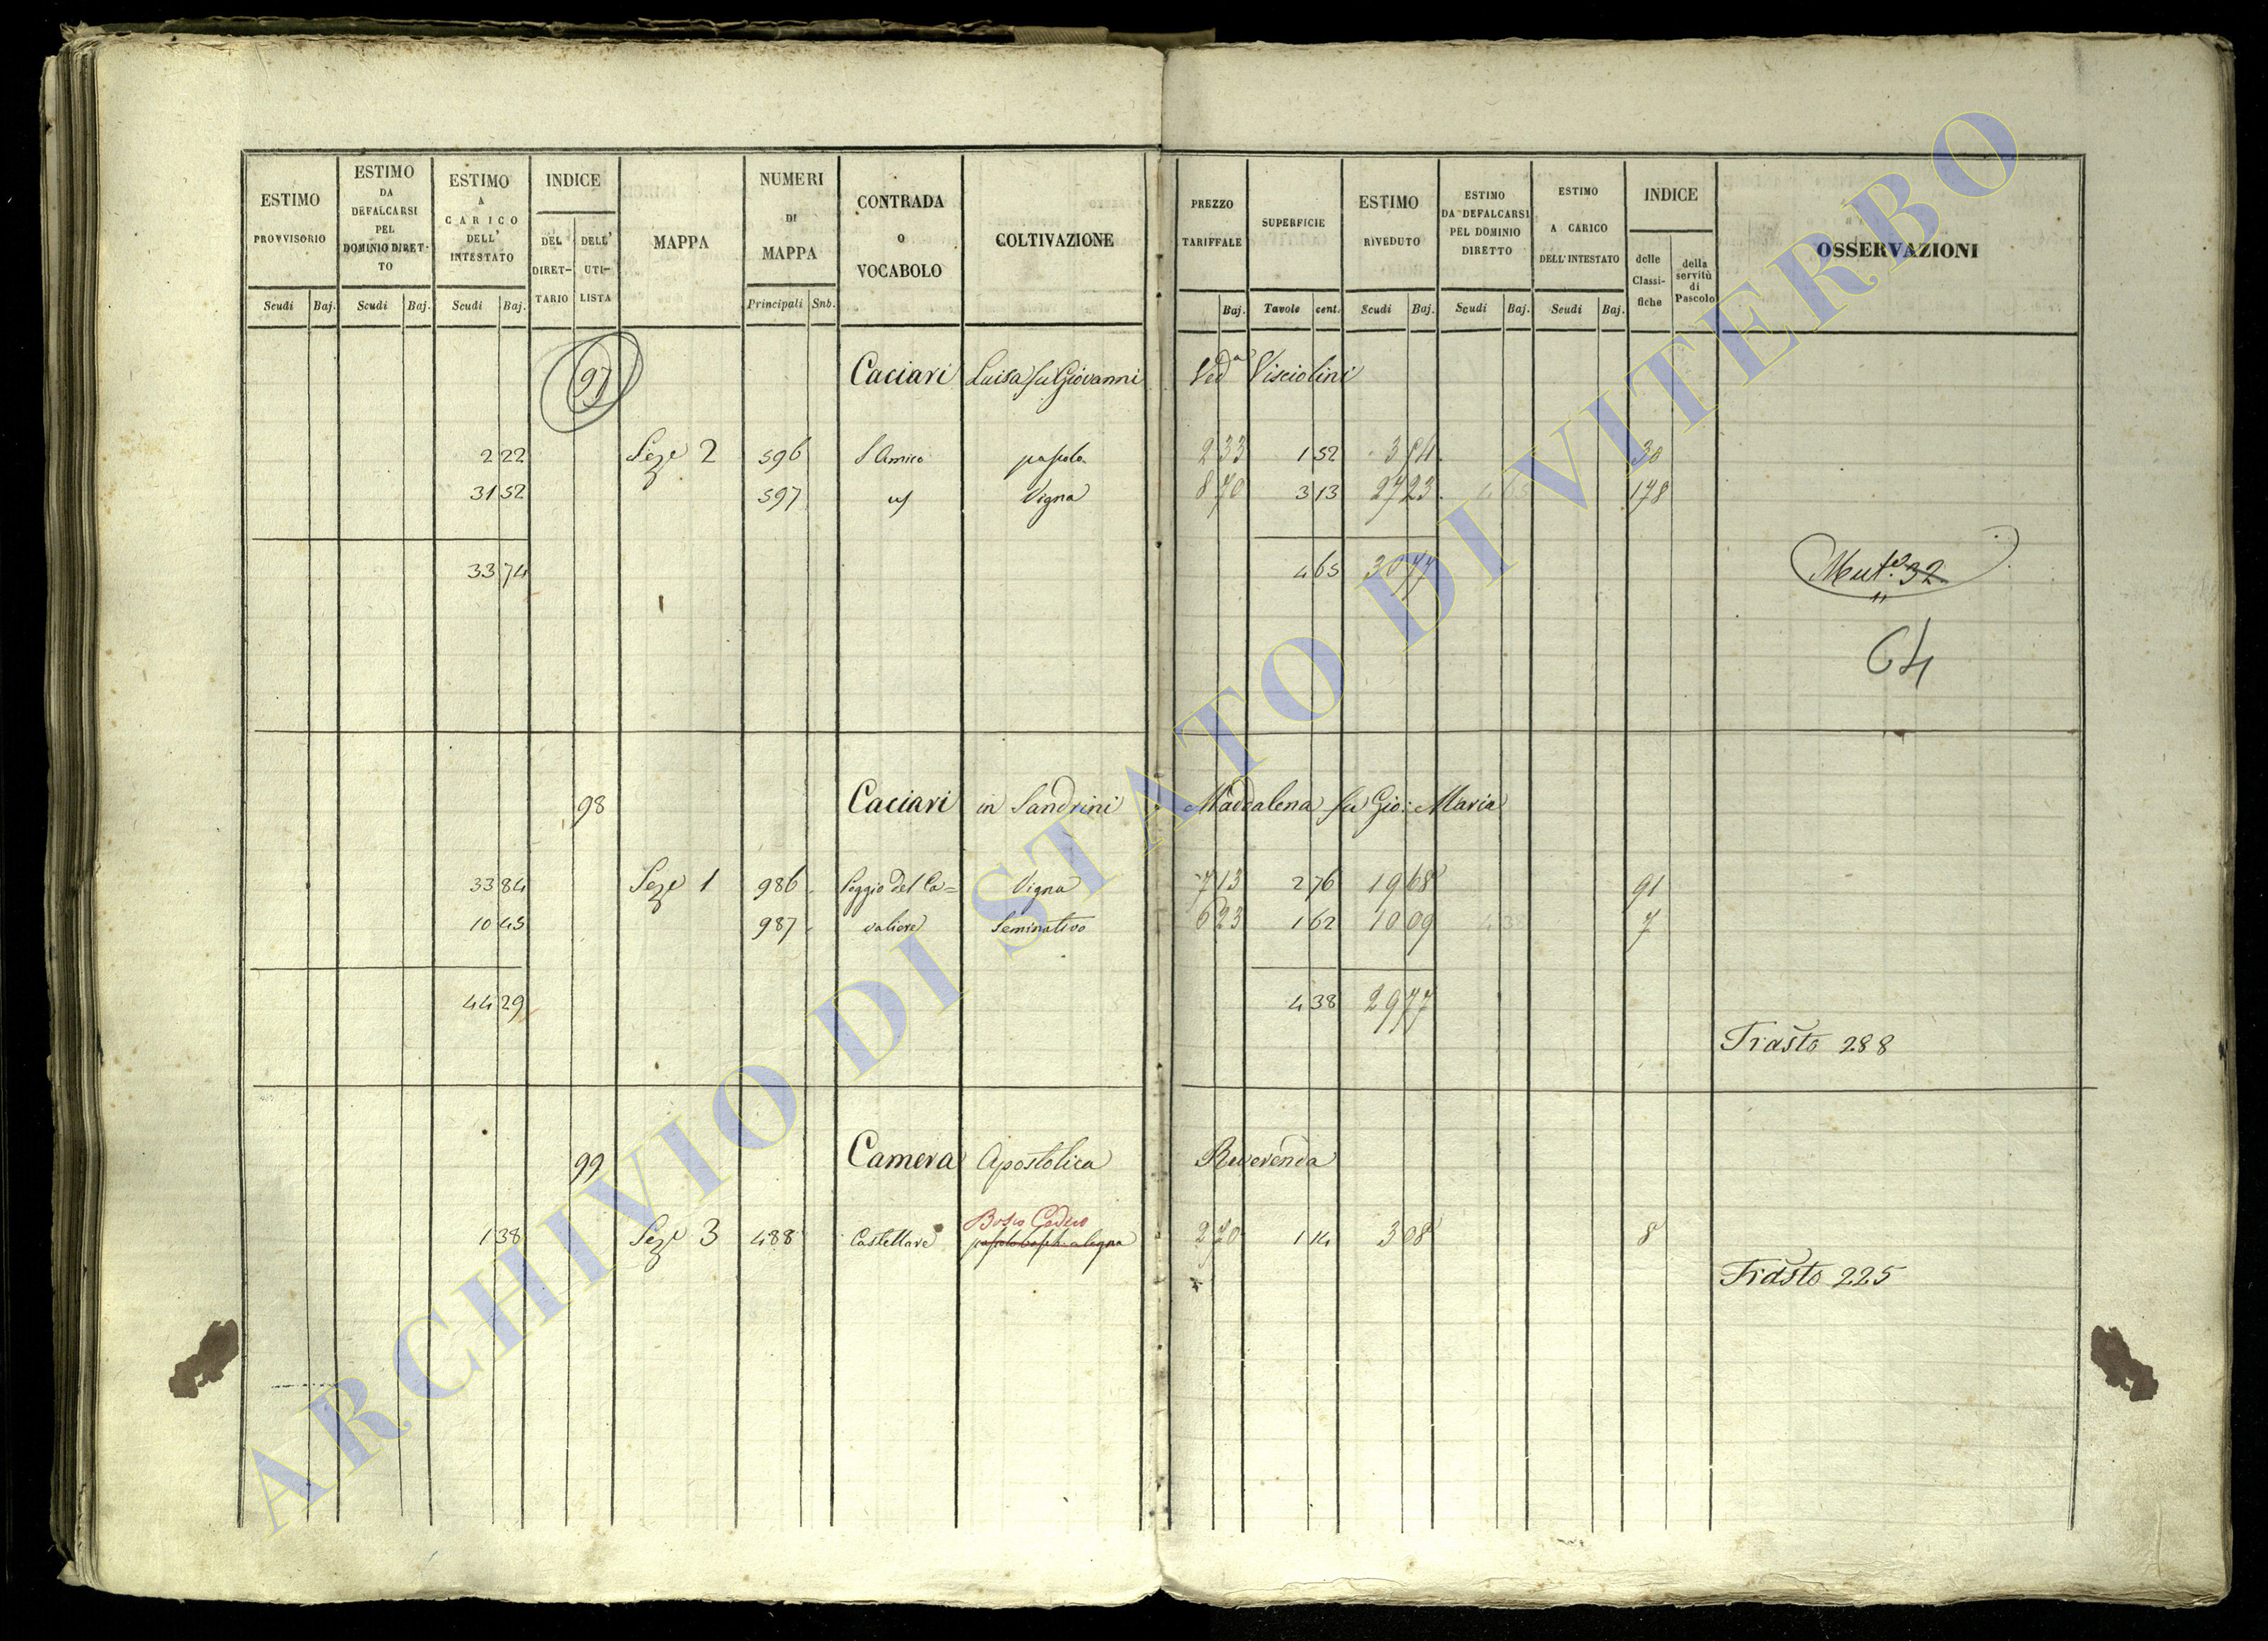 ESTIMO PROVVISORIO
Scudi Baj.
ESTIMO DA DEFALCARSI PEL DOMINIO DIRET-TO
Scudi Baj.
ESTIMO A CARICO DELL' INTESTATO
Scudi Baj.
INDICE
DEL DIRET-TARIO
DELL' UTI-LISTA
MAPPA
NUMERI DI MAPPA
Principali Snb.
CONTRADA O VOCABOLO
COLTIVAZIONE
PREZZO TARIFFALE
Baj.
SUPERFICIE
Tavole cent.
ESTIMO RIVEDUTO
Scudi Baj.
ESTIMO DA DEFALCARSI PEL DOMINIO DIRETTO
Scudi Baj.
ESTIMO A CARICO DELL'INTESTATO
Scudi Baj.
INDICE
delle Classi-fiche
della servitù di Pascolo
OSSERVAZIONI
97 Caciari Luisa fu Giovanni Ved.a Visciolini
2 22 Seze 2 596 S Amico pascolo 2 33 1 52 3 54 30
31 52 597 Vigna 8 70 3 13 27 23 178
33 74 4 65 30 77
Mut.e 32
64
98 Caciari in Sandrini Maddalena fu Gio: Maria
33 84 Seze 1 986 Poggio del Ca= Vigna 7 13 2 76 19 68 91
10 45 987 valiere Seminativo 6 23 1 62 10 09 7
44 29 4 38 29 77
Trasto 288
99 Camera Apostolica Reverenda
Bosco Ceduo
1 38 Seze 3 488 Castellare pascolo bosch. a legna 2 70 1 14 3 08 8
Trasto 225
ARCHIVIO DI STATO DI VITERBO